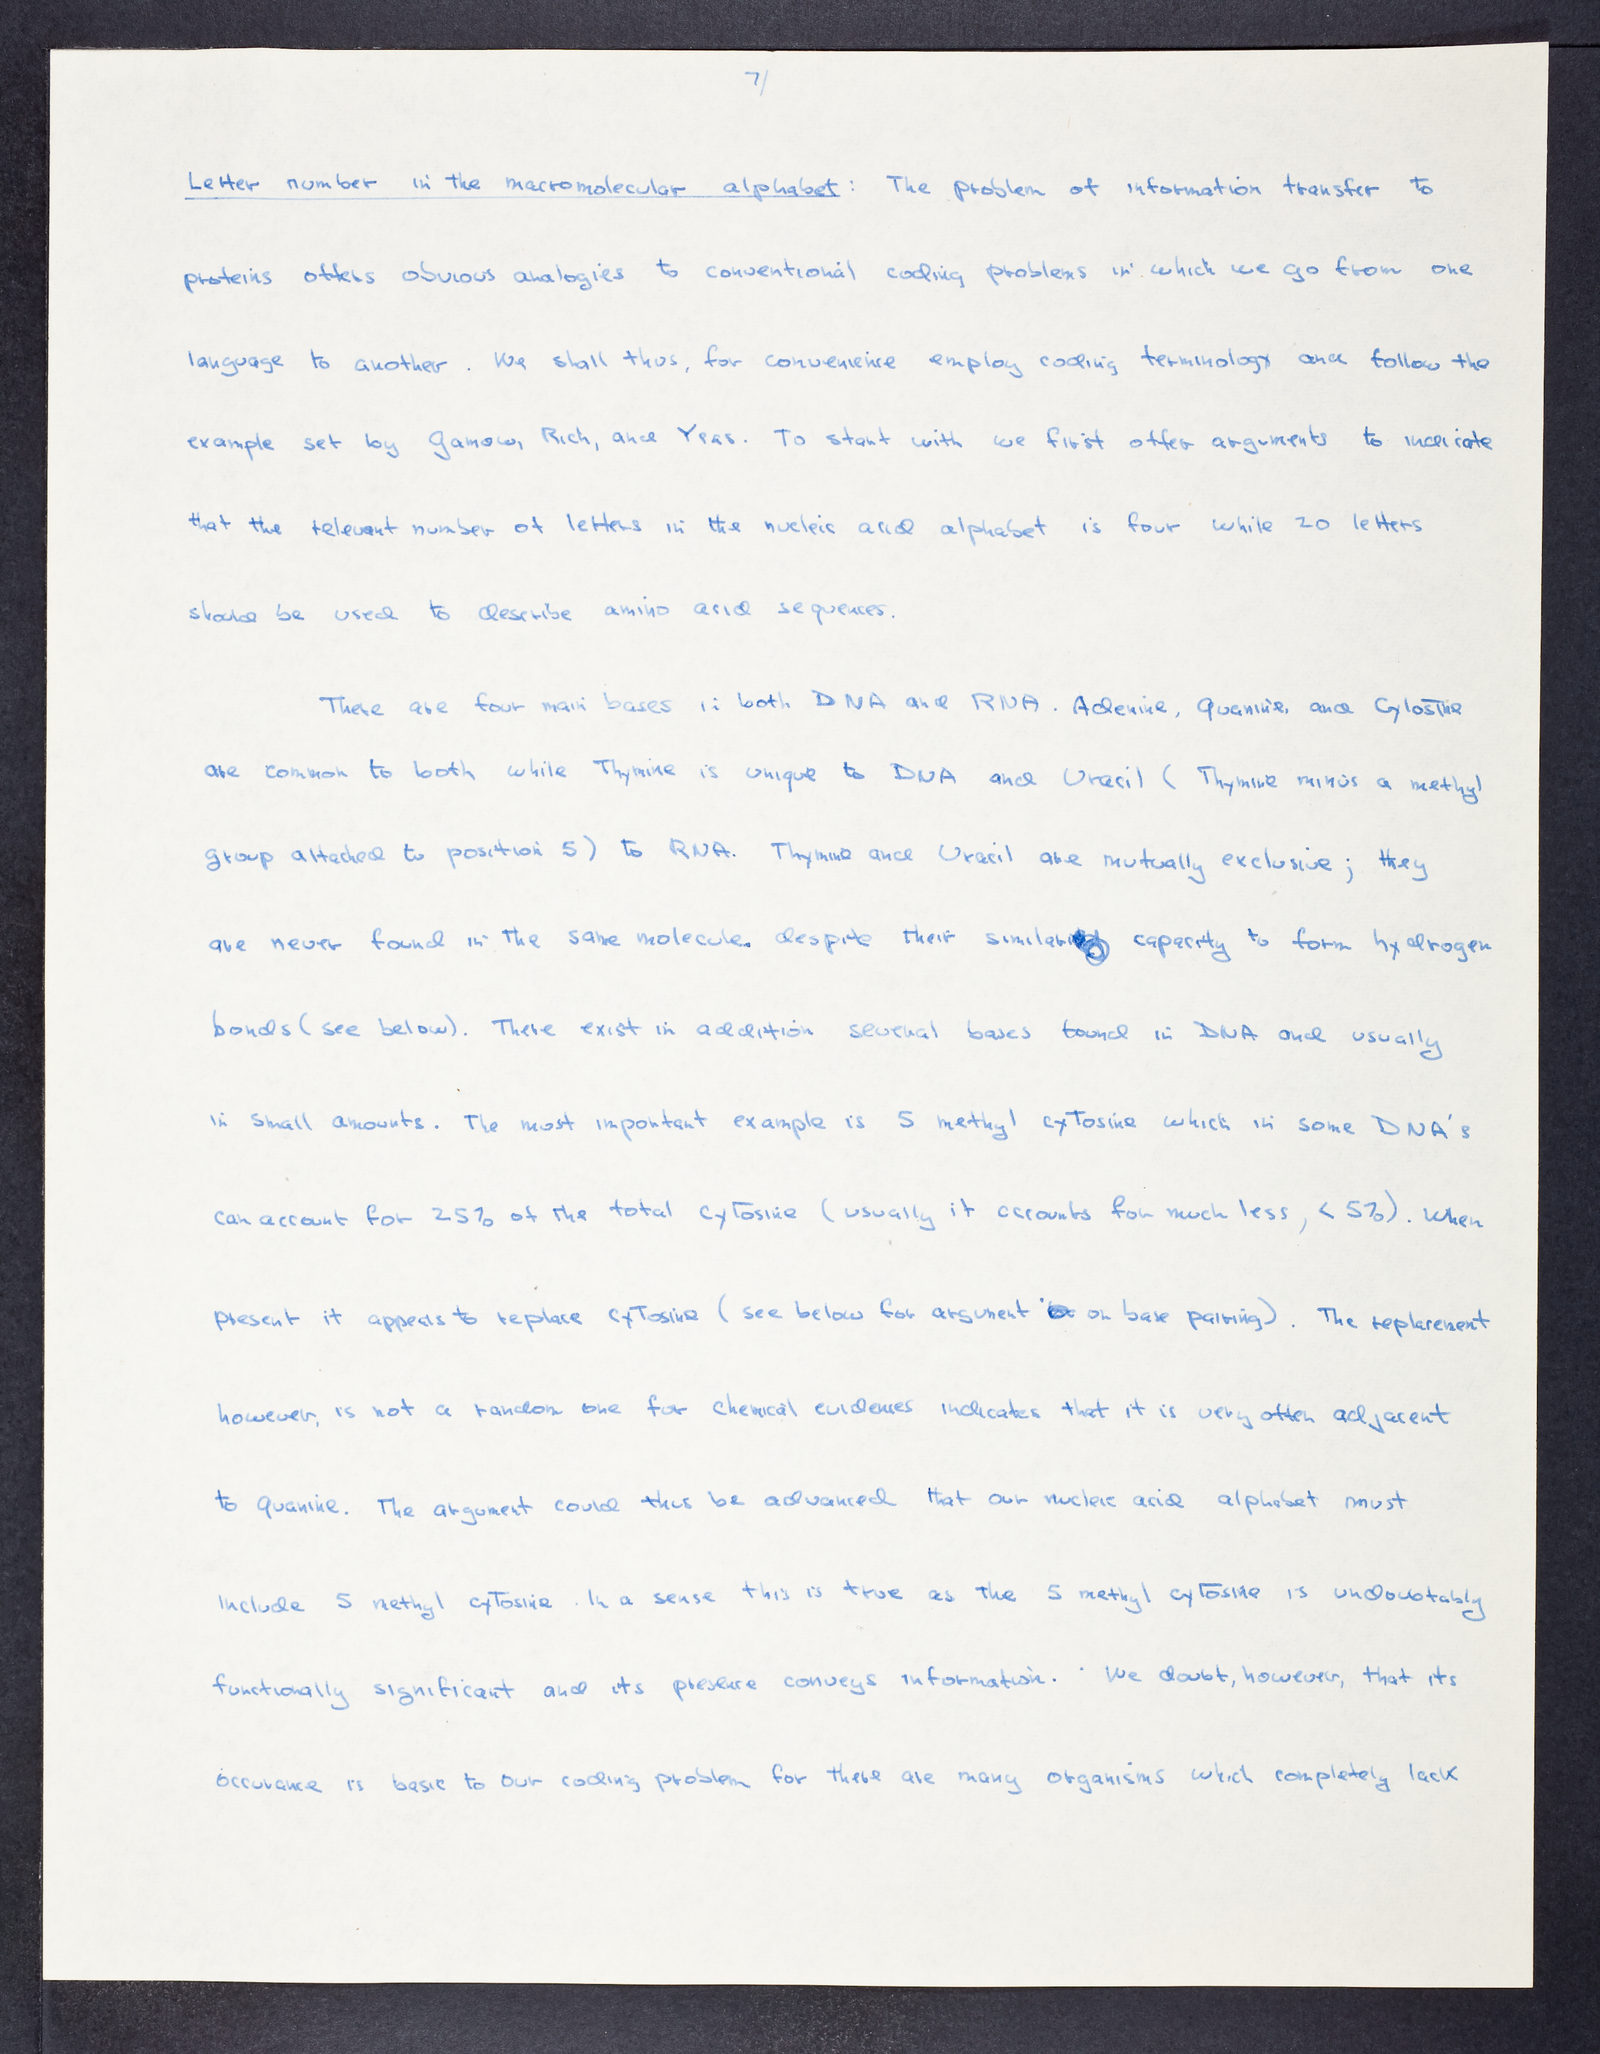 7/
Letter number in the macromolecular alphabet: The problem of information transfer to
proteins offers obvious analogies to conventional coding problems in which we go from one
language to another. We shall thus, for convenience employ coding terminology and follow the
example set by Gamow, Rich, and Ycas. To start with we first offer arguments to indicate
that the relevant number of letters in the nucleic acid alphabet is four while 20 letters
should be used to describe amino acid sequences.
There are four main bases in both DNA and RNA. Adenine, Guanine, and Cytosine
are common to both while Thymine is unique to DNA and Uracil (Thymine minus a methyl
group attached to position 5) to RNA. Thymine and Uracil are mutually exclusive; they
are never found in the same molecule. despite their similar capacity to form hydrogen
bonds (see below). There exist in addition several bases found in DNA and usually
in small amounts. The most important example is 5 methyl cytosine which in some DNA's
can account for 25% of the total cytosine (usually it accounts for much less, < 5%). When
present it appears to replace cytosine (see below for argument on base pairing). The replacement
however, is not a random one for chemical evidences indicates that it is very often adjacent
to guanine. The argument could thus be advanced that our nucleic acid alphabet must
include 5 methyl cytosine. In a sense this is true as the 5 methyl cytosine is undoubtably
functionally significant and its presence conveys information. We doubt, however, that its
occurance is basic to our coding problem for there are many organisms which completely lack